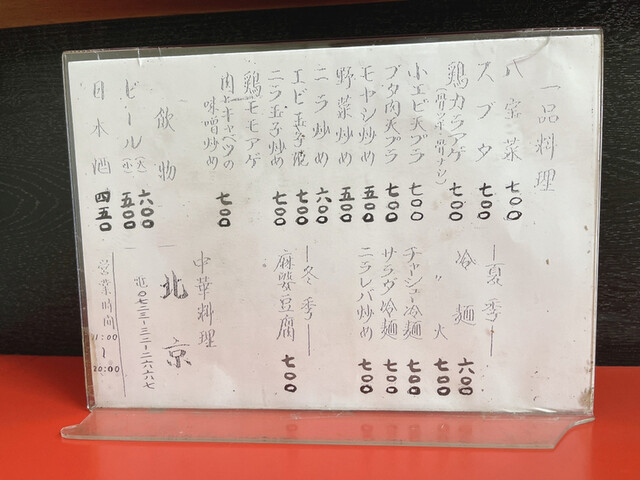 一品料理
八宝菜 七〇〇
スブタ 七〇〇
鶏カラアゲ 七〇〇
(骨ツキ・骨ナシ)
小エビ天プラ 七〇〇
ブタ肉天プラ 七〇〇
モヤシ炒め 五五〇
野菜炒め 五〇〇
ニラ炒め 六〇〇
エビ玉子焼 七〇〇
ニラ玉子炒め 七〇〇
鶏モモアゲ
肉とキャベツの
味噌炒め 七〇〇
飲物
ビール(大) 六〇〇
(小) 五〇〇
日本酒 四五〇
―夏季―
冷麺 六〇〇
〃 大 七〇〇
チャシュー冷麺 七〇〇
サラダ冷麺 七〇〇
ニラレバ炒め 七〇〇
―冬季―
麻婆豆腐 七〇〇
中華料理
北京
〇七二三―三二―二六六七
営業時間
11:00
～
20:00